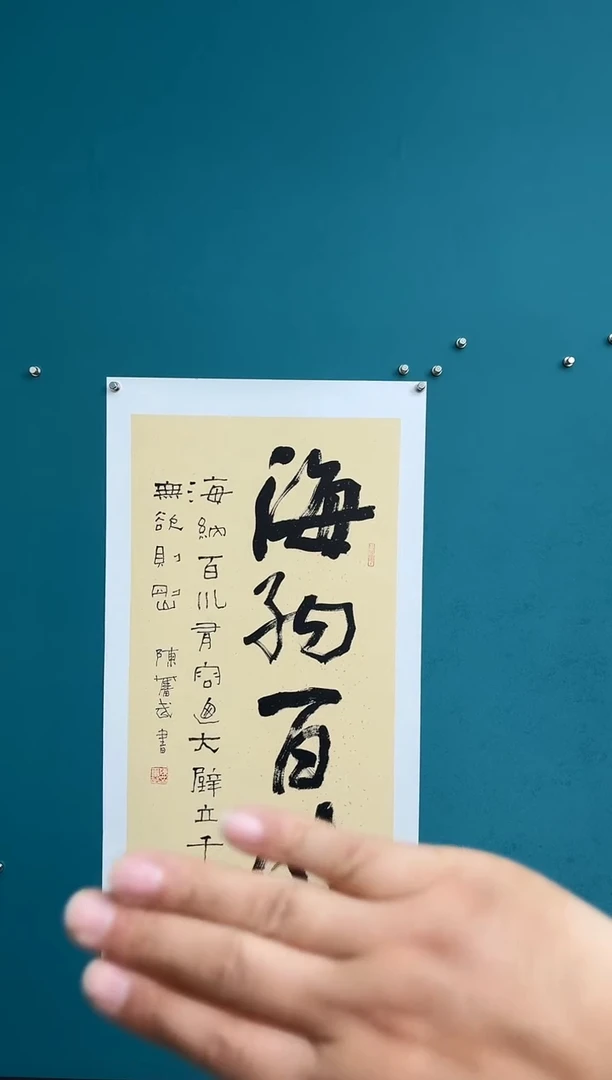 海納百川
海納百川有容迺大壁立千
無欲則剛 陳舊武書